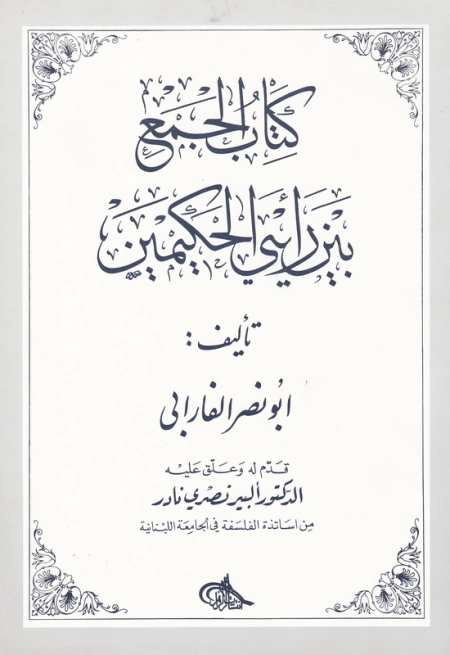 كِتَابُ الجَمْع
بَيْنَ رَأْيَيِ الحَكِيمَيْن
تأليف :
ابو نصر الفارابي
قدّم له وَعلّق عليه
الدكتور ألبير نصري نادر
من اساتذة الفلسفة في الجامعة اللبنانية